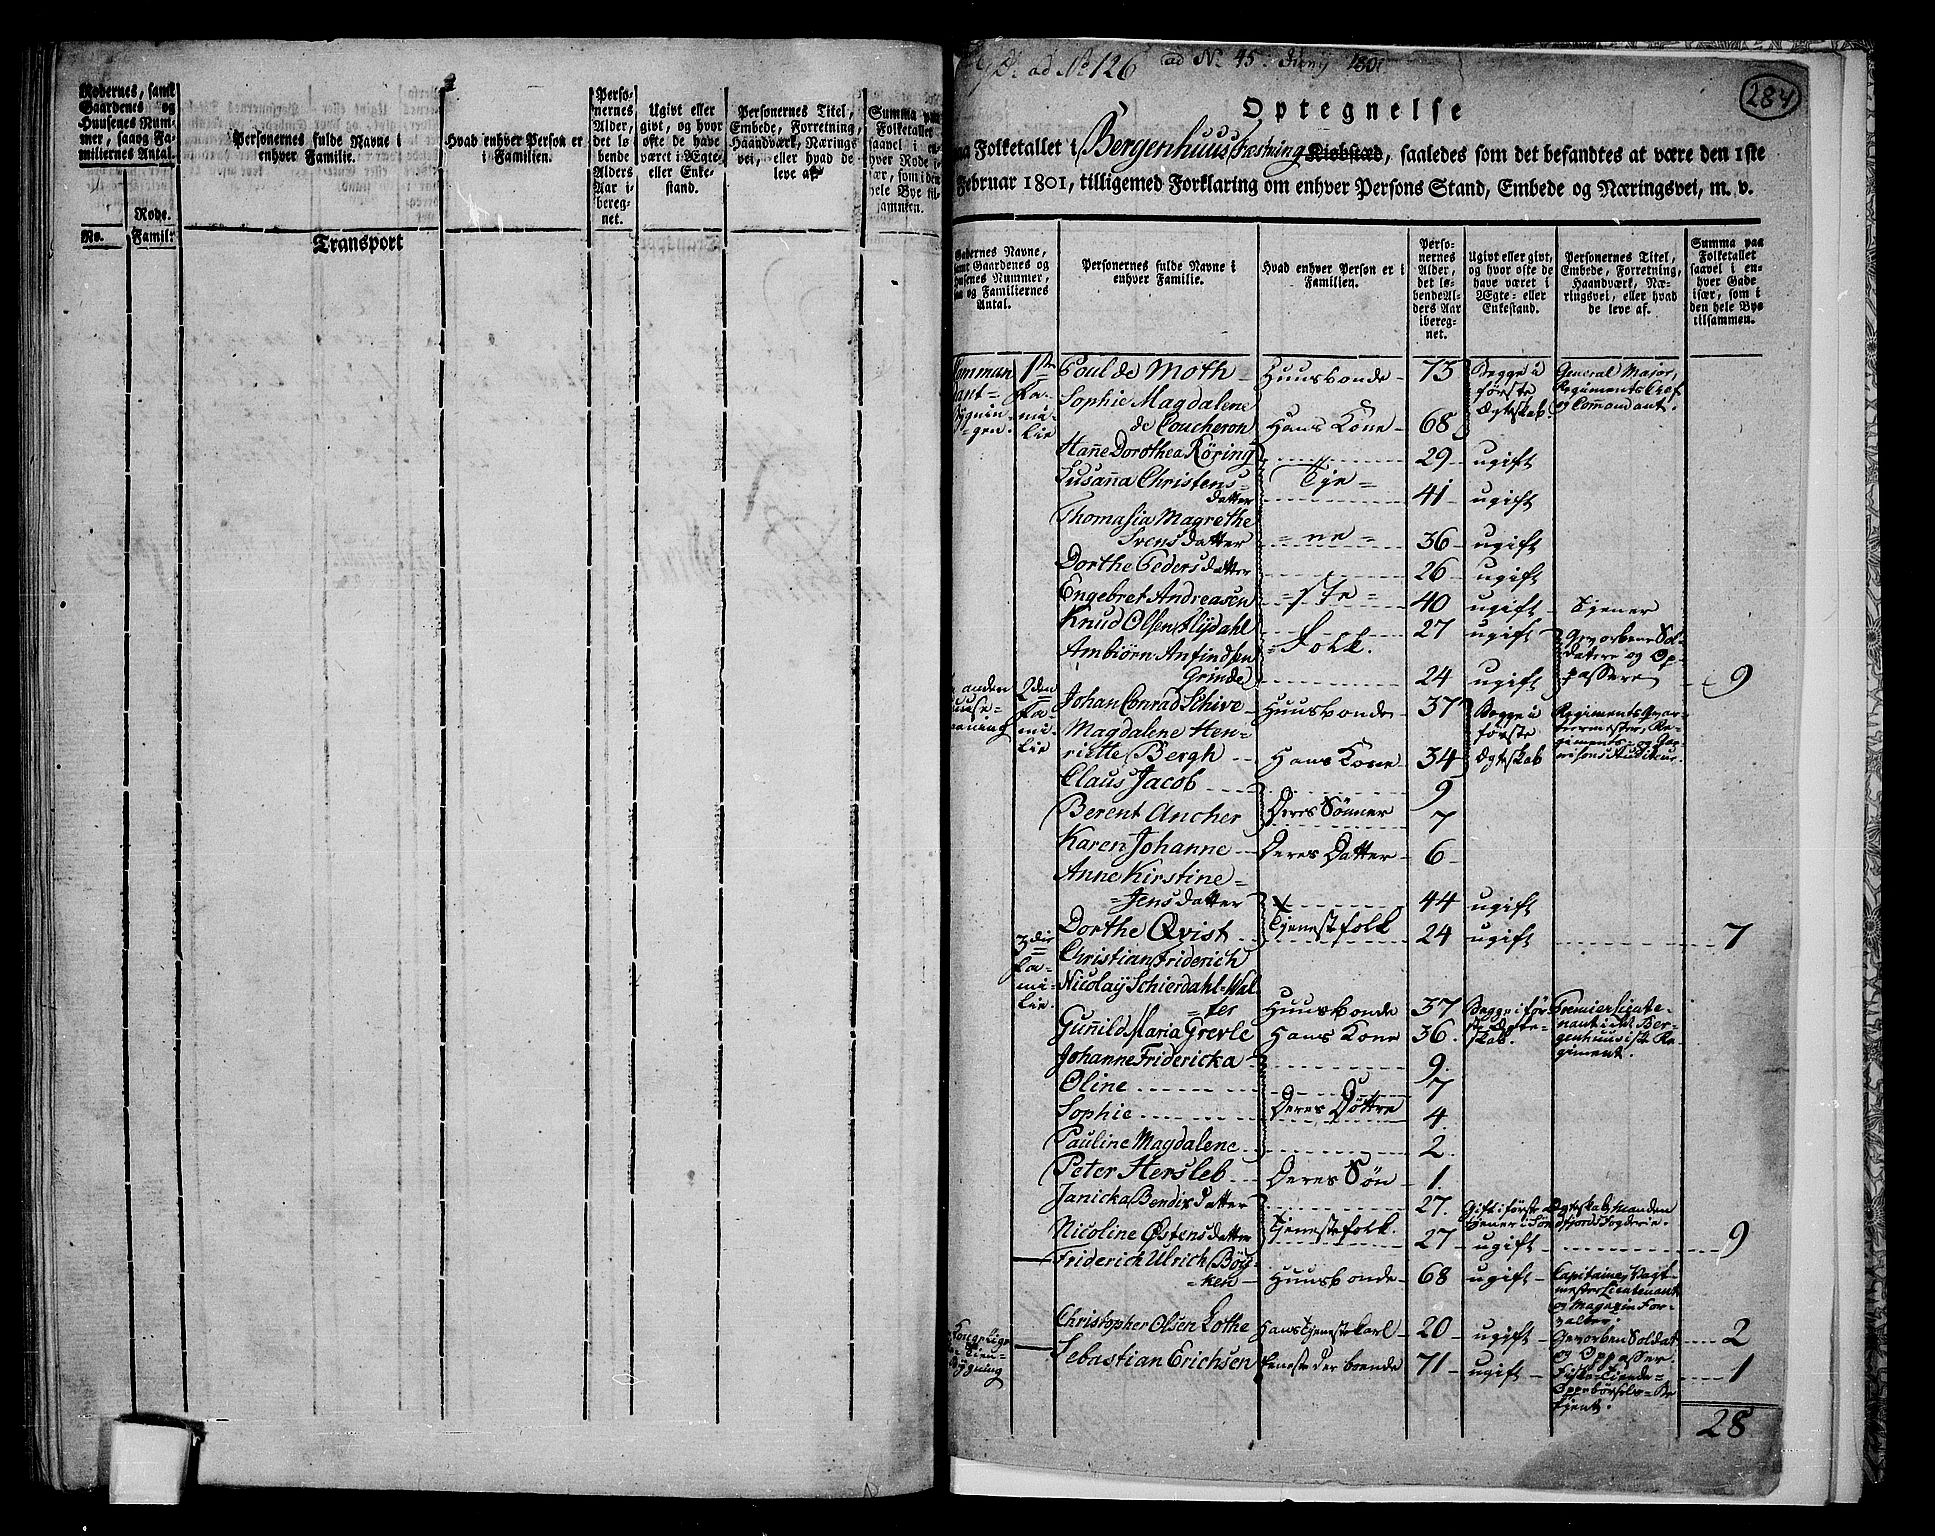 Rodernes, samt
Gaardenes og
Huusenes Num-
mer, saaog Fa-
miliernes Antal.
No.
Rode.
Famil:
Personernes fulde Navne i
enhver Familie.
Transport
Hvad enhver Person er
i Familien.
Perso-
nernes
Alder,
det lø-
bende
Alders
Aar i-
bereg-
net.
Ugivt eller
givt, og hvor
ofte de have
været i Ægte-
eller Enke-
stand.
Personernes Titel,
Embede, Forretning,
Haandværk, Nærings
vei, eller hvad de
leve af
Summa paa
Folketallet
saavel i en-
hver Rode i-
sær, som i den
hele Bye til-
sammen.
ad No 126 ad No 45. Juny 1801
284
Optegnelse
Folketallet i Bergenhuus Fæstning Kiøbstæd, saaledes som det befandtes at være den 1ste
Februar 1801, tilligemed Forklaring om enhver Persons Stand, Embede og Næringsvei, m. v.
Gadernes Navne,
samt Gaardenes og
Husenes Nummer,
og Familiernes
Antal.
Personernes fulde Navne i
enhver Familie.
Hvad enhver Person er i
Familien.
Perso-
nernes
Alder,
det lø-
bende Al-
ders Aar
ibereg-
net.
Ugivt eller givt,
og hvor ofte de
have været i
Ægte- eller
Enkestand.
Personernes Titel,
Embede, Forretning,
Haandværk, Næ-
ringsvei, eller hvad
de leve af.
Summa paa
Folketallet
saavel i en-
hver Gade
især, som i
den hele Bye
tilsammen.
Komman
dant=
Bygnin=
gen. 1ste Fa=mi=lie
Poul de Moth - Huusbonde - 73 Begge i første Ægteskab. General Major, Regiments Chef og Comandant.
Sophie Magdalene
de Coucheron Hans Kone - 68
Hañe Dorothea Röring 29 - ugift
Susaña Christens=
datter Tje= 41 - ugift
Thomasia Magrethe
Svensdatter =ne= 36 - ugift
Dorthe Pedersdatter 26 - ugift
Engebret Andreasen =ste= 40 ugift - Tjener
Knud Olsen Flÿdahl 27 ugift Gevorbene Sol-
Ambiörn Anfindsen =Folk. datere og Op-
Grinde 24 ugift passere 9
anden 2den Fa=mi=lie
Johan Conrad Schive - Huusbonde - 37 Begge i første Ægteskab Regiments Qvar-
teermester, Re-
giments- og Gar-
nisons Auditeur.
Magdalene Hen=
riette Bergh Hans Kone - 34
Claus Jacob 9
Berent Ancher Deres Sönner 7
Karen Johanne Deres Datter - 6 -
Anne Kirstine=
=Jensdatter 44 ugift
Dorthe Qvist Tjenestefolk 24 ugift 7
3die Fa=mi=lie
Christian Friderich
Nicolaÿ Schierdahl=Wal
=ter Huusbonde 37 Begge i før ste Ægte=skab. Premier Lieute-
nant i det Ber-
genhuusiske Re-
giment.
Guñild Maria Grevle Hans Kone 36.
Johanne Fridericka 9.
Oline 7
Sophie Deres Döttre 4.
Pauline Magdalene 2.
Peter Hersleb Deres Sön 1.
Janicka Bendixdatter 27. Gift i første Ægteskab, Manden
tjener i Söndfjords Fogderie.
Nicoline Östensdatter Tjenestefolk. 27 - ugift 9
Friderich Ulrich Böÿ=
=ken Huusbonde - 68 ugift - Capitaine, Vagt-
mester Lieutenant
og Magazin For-
valter.
Christopher Olsen Lothe Hans Tjenestekarl - 20 - ugift - Gevorben Soldat 2
og Oppasser.
Kongelige
Bygning Sebastian Erichsen 71 - ugift - Fiske=Tiende= 1
Oppebörsels=Be
tjent.
28